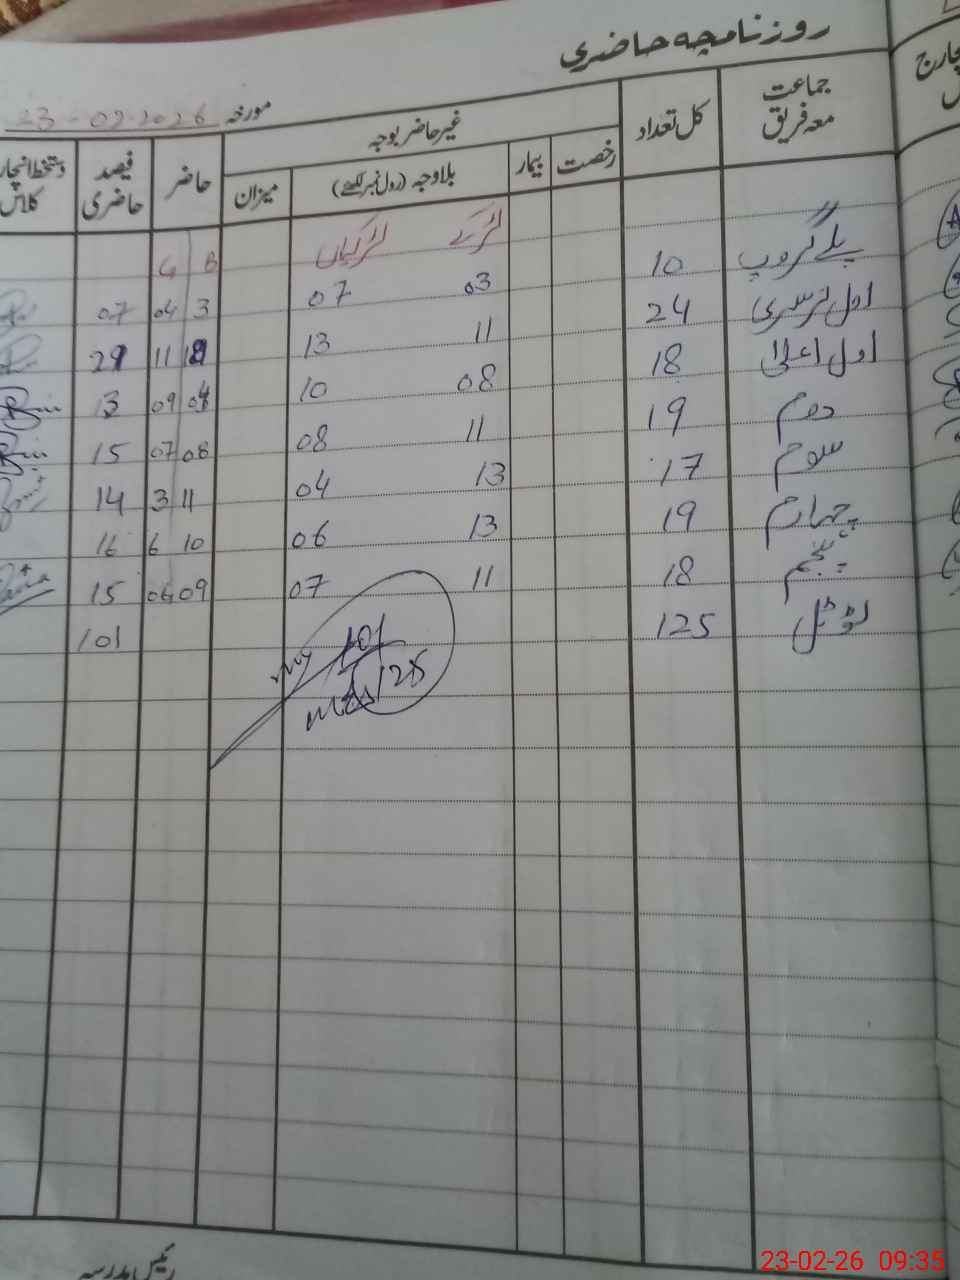 روزنامچہ حاضری
مورخہ 23-02-2026
جماعت معہ فریق کل تعداد غیر حاضر بوجہ حاضر فیصد حاضری دستخط انچارج کلاس
رخصت بیمار بلاوجہ (رول نمبر لکھئے) میزان
لڑکے لڑکیاں B G
پلے گروپ 10 03 07 3 04 07
اول نرسری 24 11 13 18 11 29
اول اعلیٰ 18 08 10 04 09 13
دوم 19 11 08 08 07 15
سوم 17 13 04 11 3 14
چہارم 19 13 06 10 6 16
پنجم 18 11 07 09 06 15
ٹوٹل 125 101
101
125
رئیس مدرسہ
چارج
23-02-26 09:35